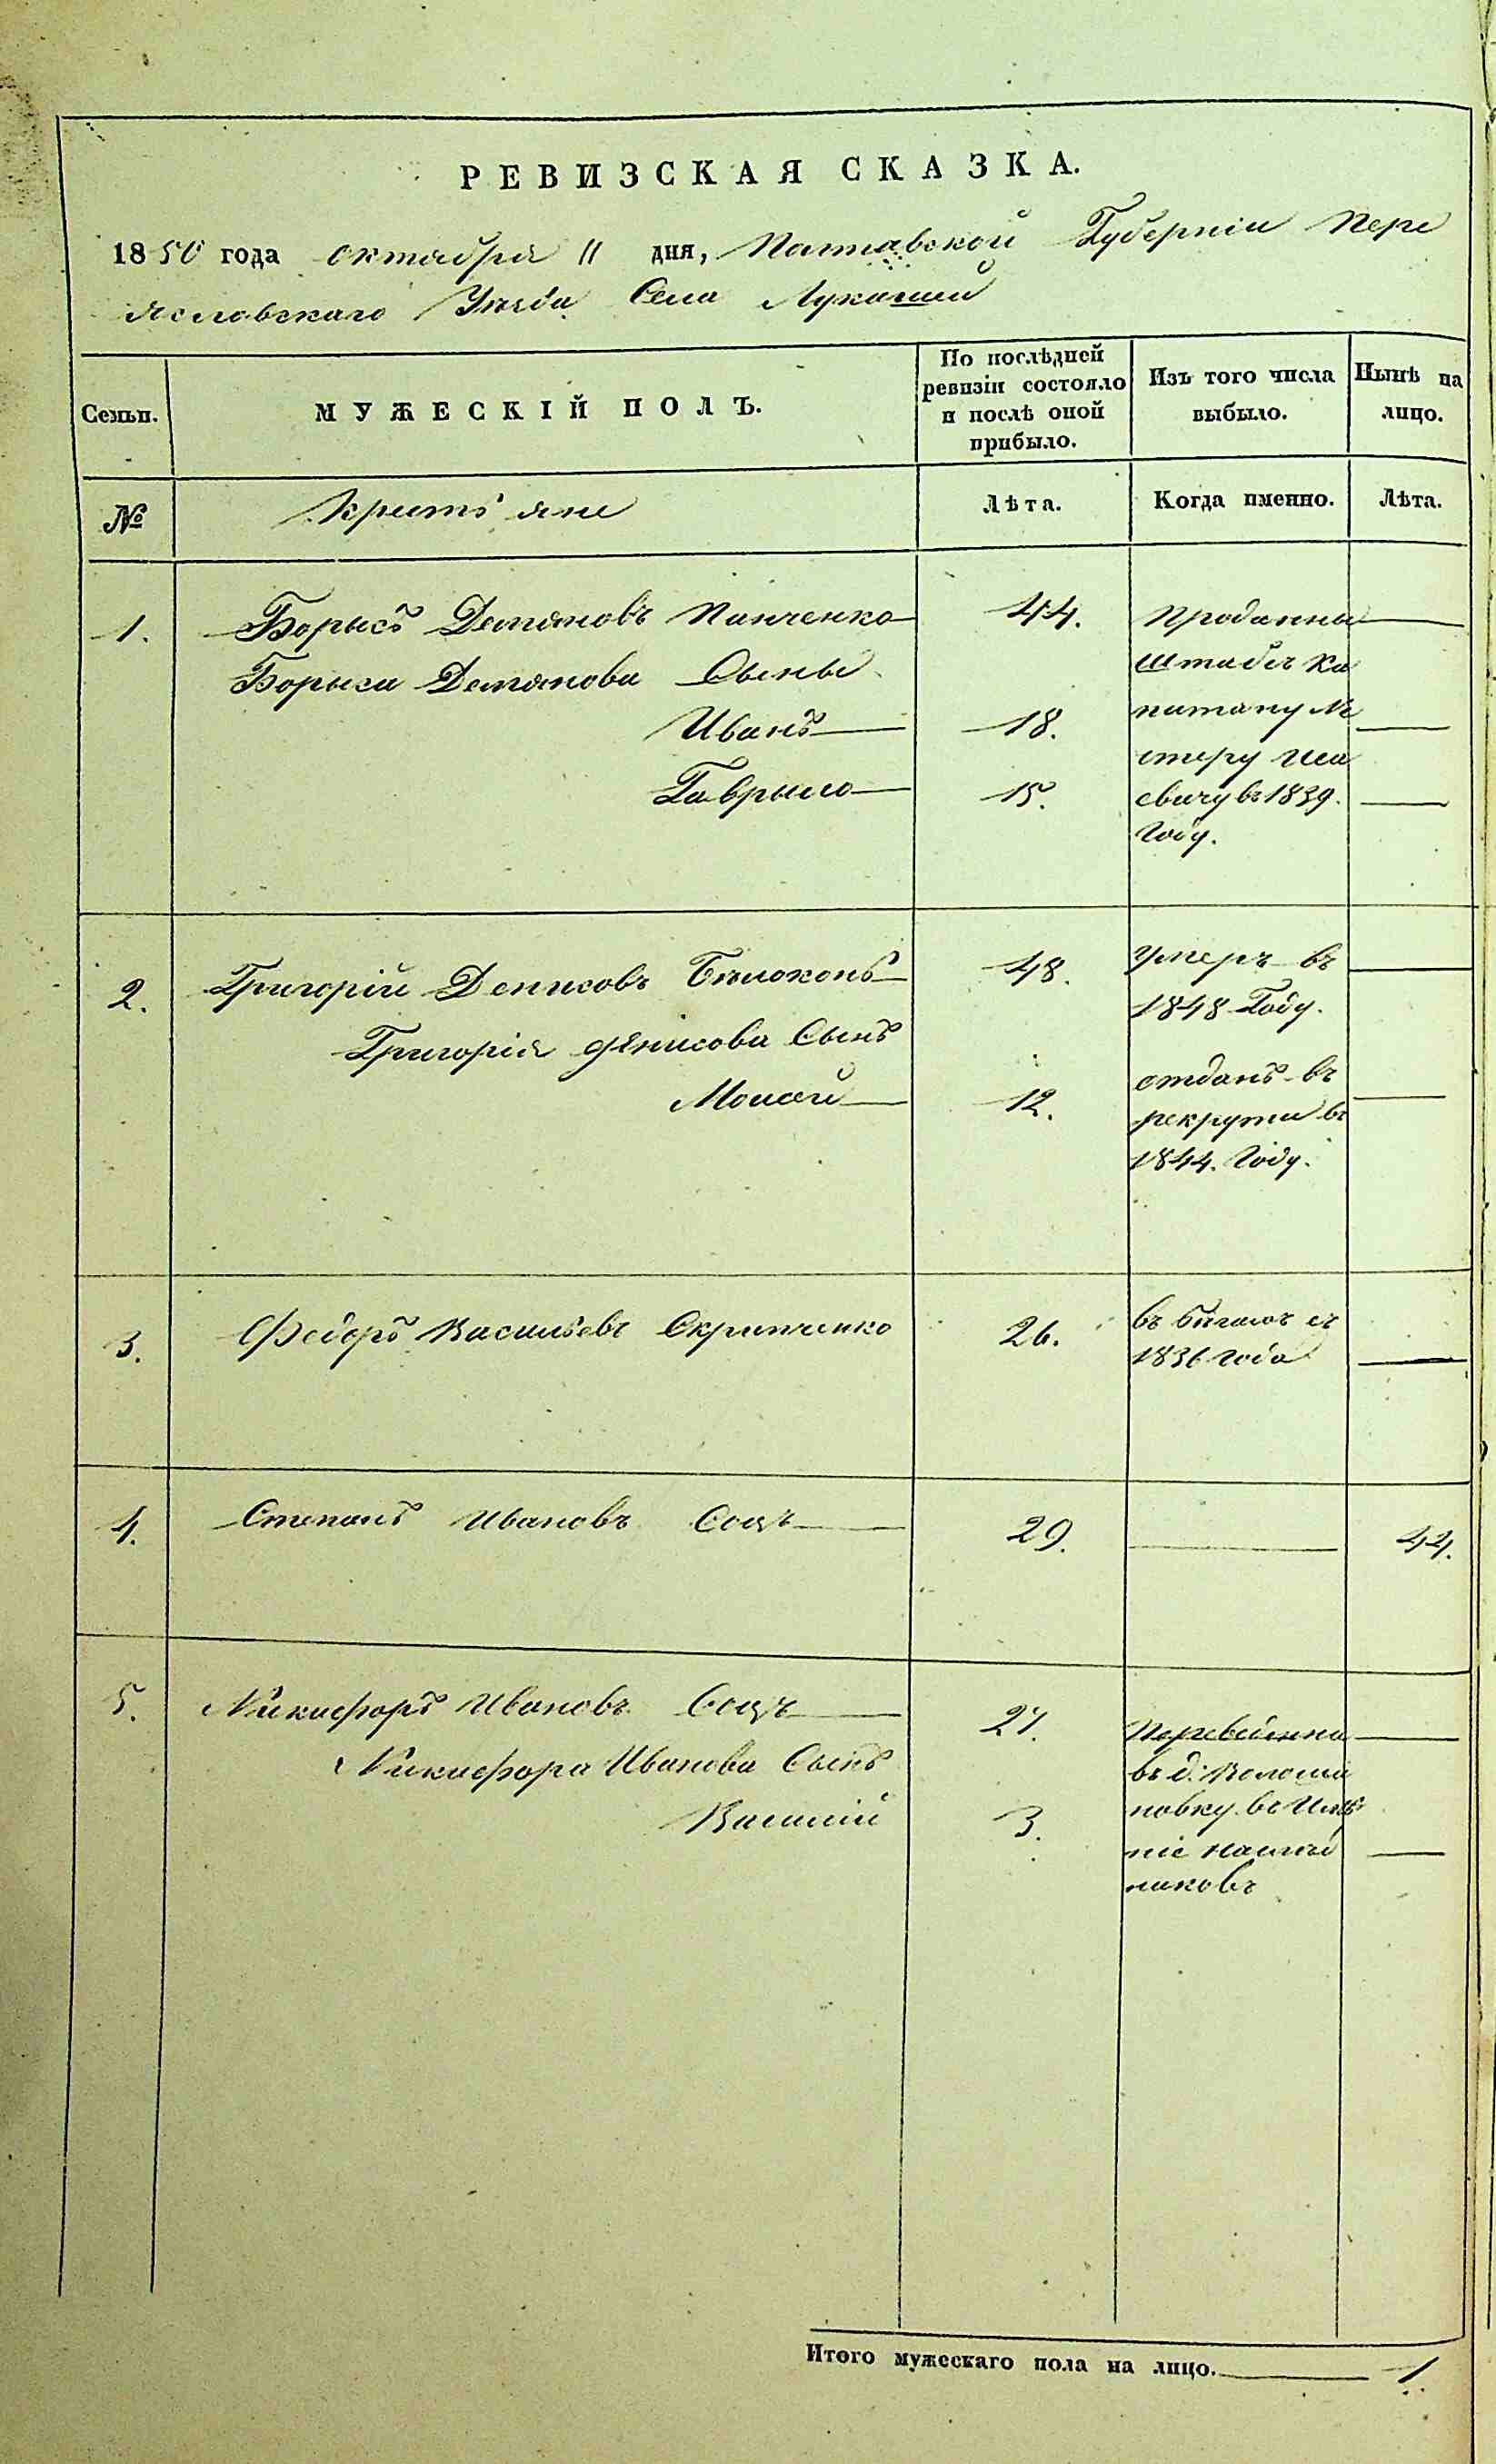 РЕВИЗСКАЯ СКАЗКА.
1850 года октября 11 дня, Полтавской Губерніи Пере
яславскаго Уѣзда Села Лукашей
Семьи.
МУЖЕСКІЙ ПОЛЪ.
По послѣдней ревизіи состояло и послѣ оной прибыло.
Изъ того числа выбыло.
Нынѣ на лицо.
№
Крестьяне
Лѣта.
Когда именно.
Лѣта.
1. Борысъ Демяновъ Панченко 44. Проданны
Борыса Демянова Сыны штабсъ ка
Иванъ 18. питану
Гаврыло 15. евичу въ 1839.
году.
2. Григорій Денисовъ Бѣлоконь 48. умеръ въ
1848 Году.
Григорія Денисова Сынъ
Моисей 12. отданъ въ
рекруты въ
1844. Году.
3. Федоръ Васильевъ Скрипченко 26. въ бѣгахъ съ
1836 года
4. Степанъ Ивановъ Соцъ 29. 44.
5. Никифоръ Ивановъ Соцъ 27. Переведенны
Никифора Иванова Сынъ въ д. Волоши
Василій 3. новку въ Имѣ
ніе наслѣд
никовъ
Итого мужескаго пола на лицо. 1.